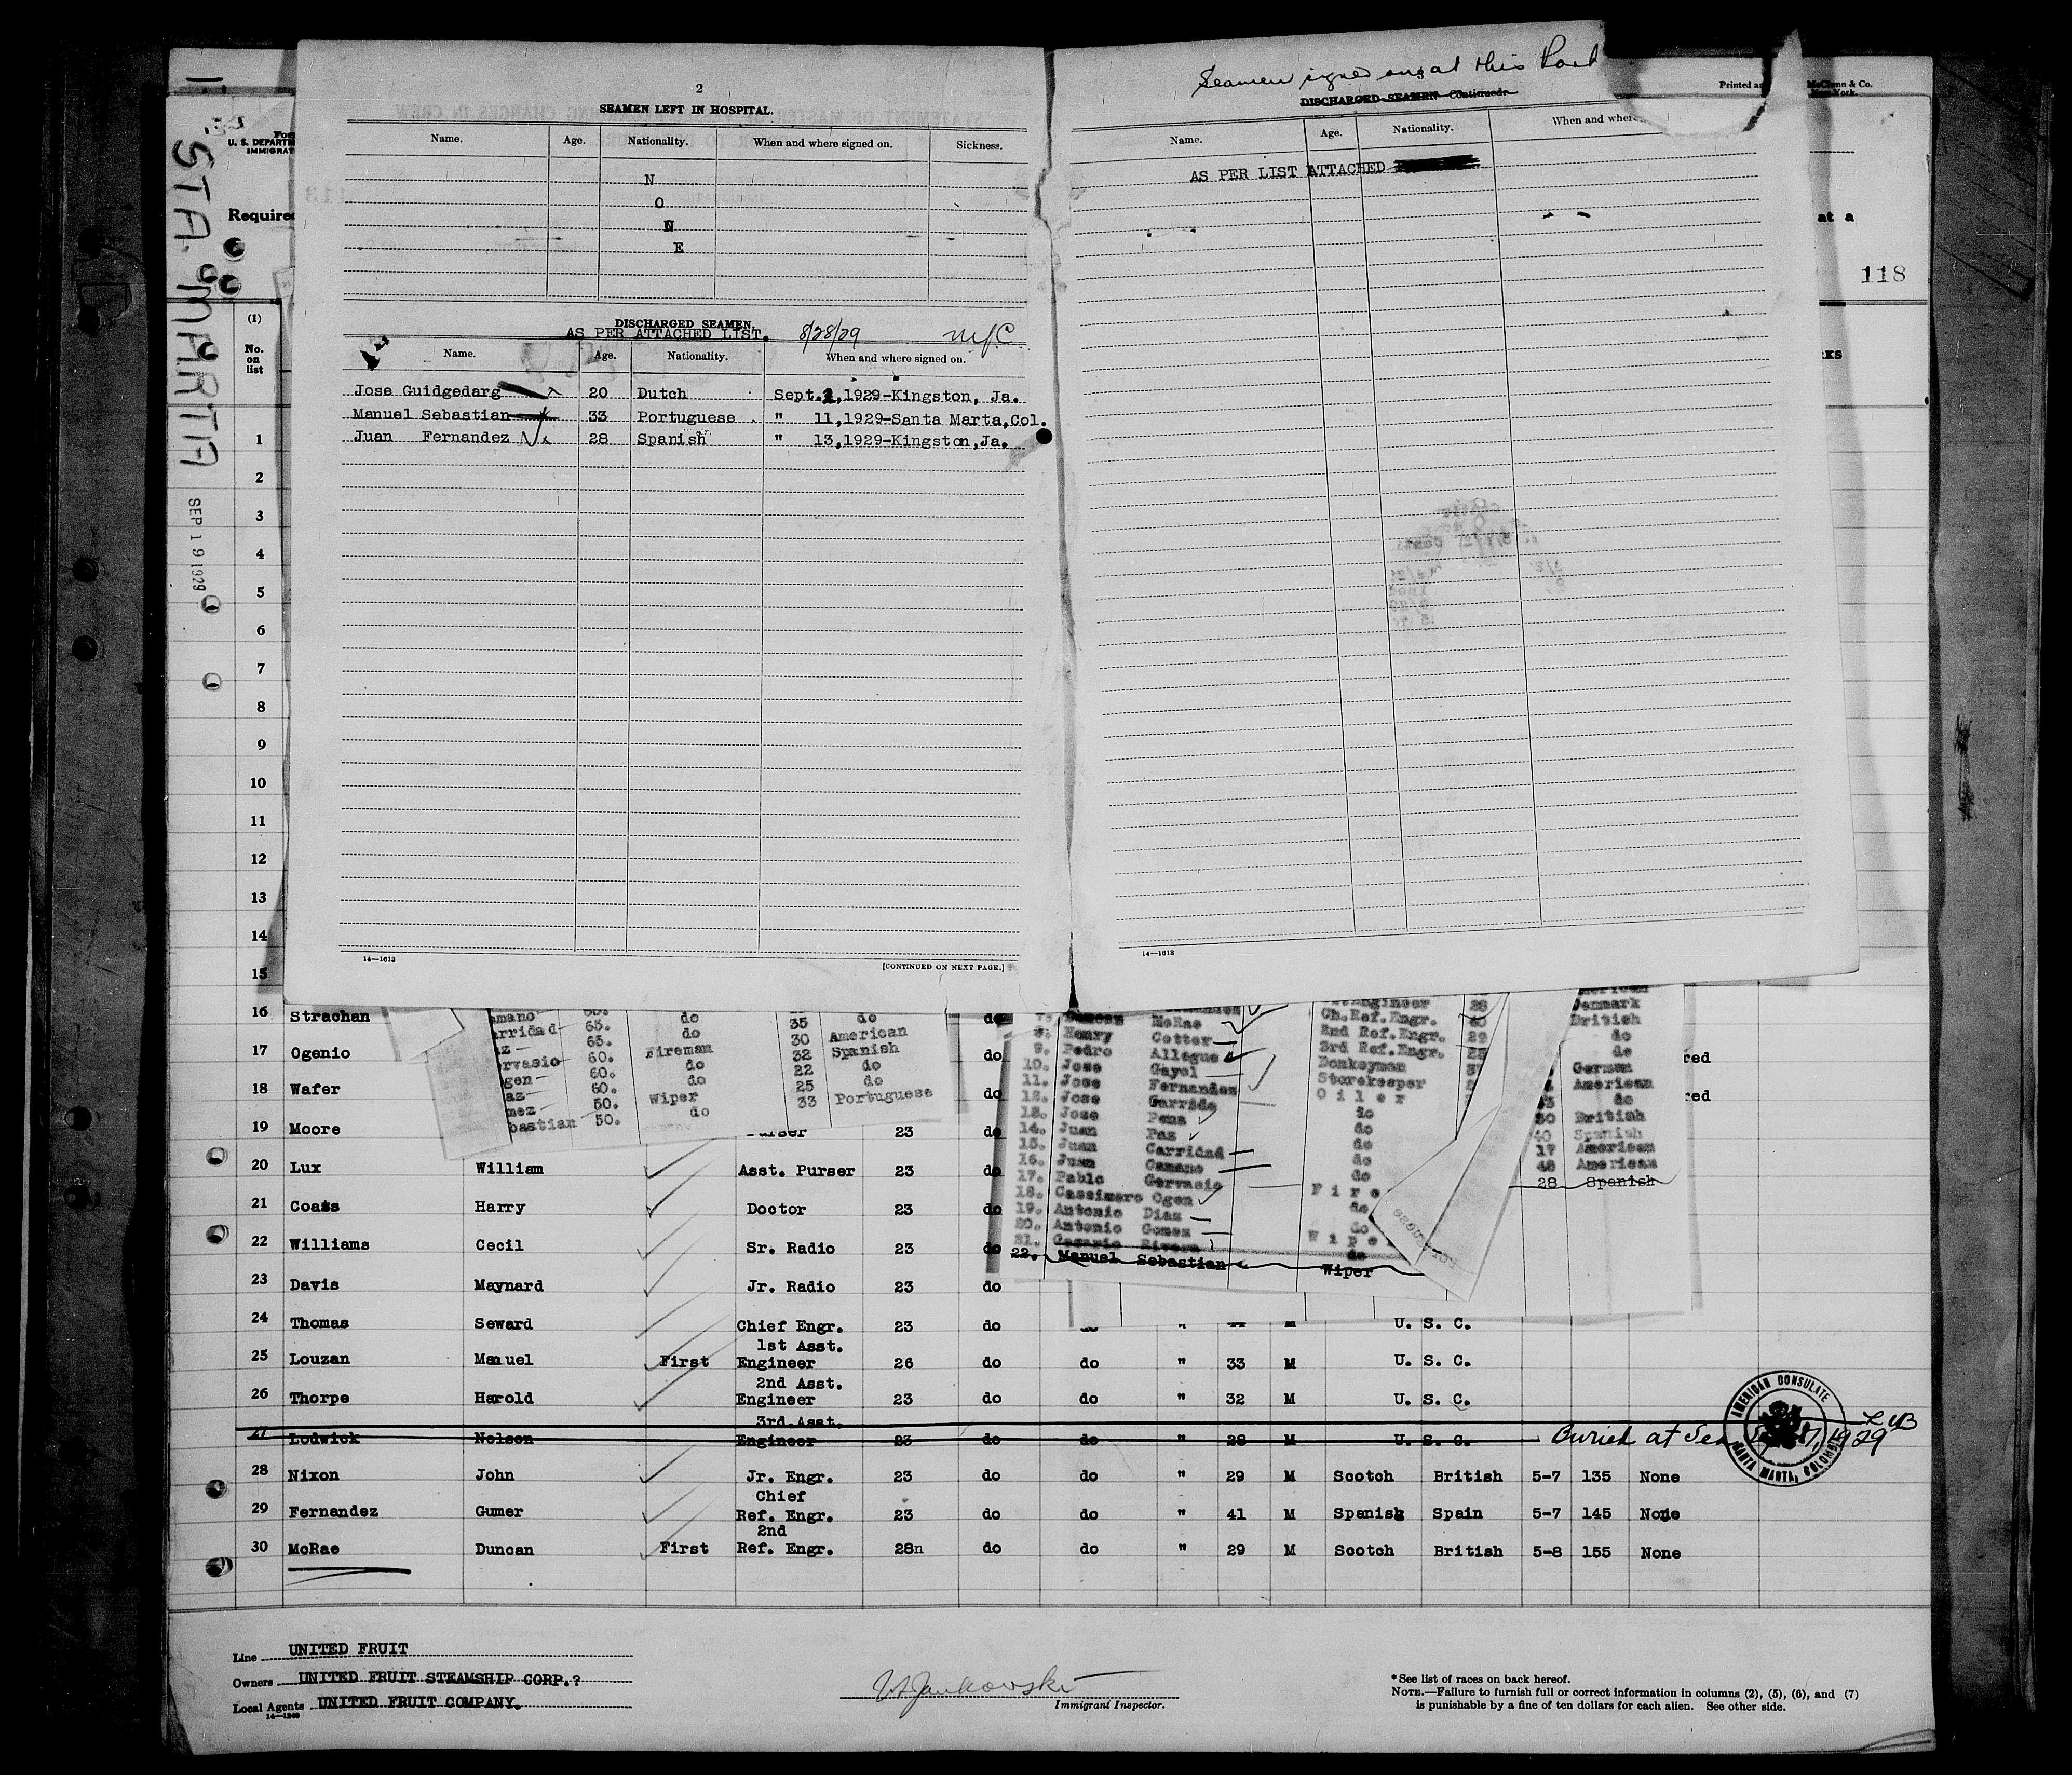 STA. MARTIA
SEP 19 1929
U. S. DEPARTM
IMMIGRAT
Require
2
SEAMEN LEFT IN HOSPITAL.
Name. Age. Nationality. When and where signed on. Sickness.
N
O
N
E
DISCHARGED SEAMEN.
AS PER ATTACHED LIST. 8/28/29 MJC
Name. Age. Nationality. When and where signed on.
Jose Guidgedarg 20 Dutch Sept. 2, 1929-Kingston, Ja.
Manuel Sebastian 33 Portuguese " 11,1929-Santa Marta,Col.
Juan Fernandez 28 Spanish " 13,1929-Kingston,Ja.
14—1613 [CONTINUED ON NEXT PAGE.]
Seamen signed on at this Port
3
DISCHARGED SEAMEN—Continued.
Name. Age. Nationality. When and where
AS PER LIST ATTACHED
14—1613
Printed an McClunn & Co.
New York.
at a
118
KS
(1)
No.
on
list
1
2
3
4
5
6
7
8
9
10
11
12
13
14
15
16 Strachan do
17 Ogenio do red
18 Wafer do red
19 Moore Purser 23 do
20 Lux William Asst. Purser 23 do
21 Coats Harry Doctor 23 do
22 Williams Cecil Sr. Radio 23 do
23 Davis Maynard Jr. Radio 23 do
24 Thomas Seward Chief Engr. 23 do do " 44 M U. S. C.
1st Asst.
25 Louzan Manuel First Engineer 26 do do " 33 M U. S. C.
2nd Asst.
26 Thorpe Harold Engineer 23 do do " 32 M U. S. C.
3rd Asst.
27 Lodwick Nelson Engineer 23 do do " 28 M U. S. C. Buried at Sea 1929
28 Nixon John Jr. Engr. 23 do do " 29 M Scotch British 5-7 135 None
Chief
29 Fernandez Gumer Ref. Engr. 23 do do " 41 M Spanish Spain 5-7 145 None
2nd
30 McRae Duncan First Ref. Engr. 28n do do " 29 M Scotch British 5-8 155 None
AMERICAN CONSULATE
SANTA MARTA, COLOMBIA
mano do 35 do
rridad 65. do 30 American
az 65. Fireman 32 Spanish
rvasio 60. do 22 do
gen 60. do 25 do
az 60. Wiper 33 Portuguese
mez 50. do
bastian 50.
Duncan McRae Ch.Ref.Engr.
Henry Cotter 2nd Ref.Engr.
9. Pedro Allegue 3rd Ref.Engr.
10. Jose Gayol Donkeyman
11. Jose Fernandez Storekeeper
12. Jose Garrido Oiler
13. Jose Pena do
14. Juan Paz do
15. Juan Carridad do
16. Juan Camano do
17. Pablo Gervasio do
18. Cassimero Ogen Fire
19. Antonio Diaz do
20. Antonio Gomez do
21. Rivera Wiper
22. Manuel Sebastian Wiper
Denmark
British
do
do
German
American
do
30 British
40 Spanish
17 American
48 American
28 Spanish
Line UNITED FRUIT
Owners UNITED FRUIT STEAMSHIP CORP.?
Local Agents UNITED FRUIT COMPANY.
14—1240
Immigrant Inspector.
*See list of races on back hereof.
NOTE.—Failure to furnish full or correct information in columns (2), (5), (6), and (7)
is punishable by a fine of ten dollars for each alien. See other side.